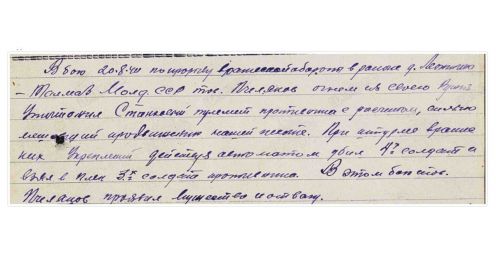 В бою 20.8.44 по прорыву вражеской обороны в районе д.
– Талмаз Молд. ССР тов. Пчеланов огнем из своего
Уничтожил Станковый пулемет противника с расчетом, сильно
мешавший продвижению нашей пехоты. При штурме вражес
ких укреплений действуя автоматом убил 4х солдат и
взял в плен 3х солдат противника. В этом бою тов.
Пчеланов проявил мужество и отвагу.